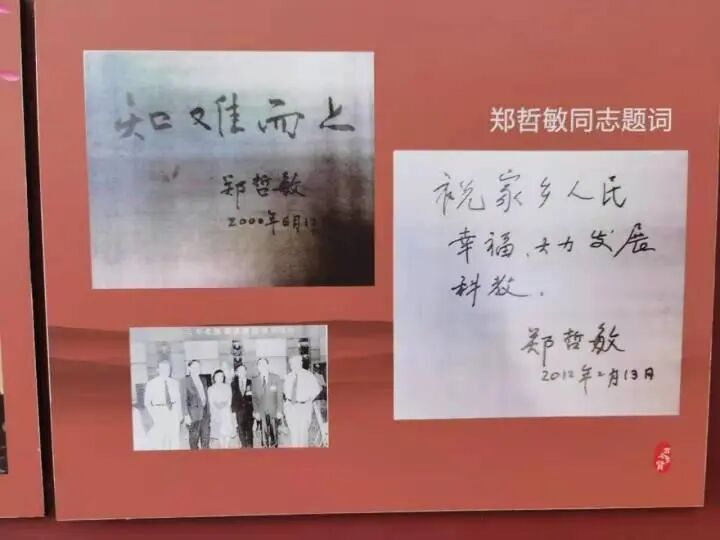 知难而上
郑哲敏
2000年6月12
郑哲敏同志题词
祝家乡人民
幸福、大力发展
科教.
郑哲敏
2012年2月13日